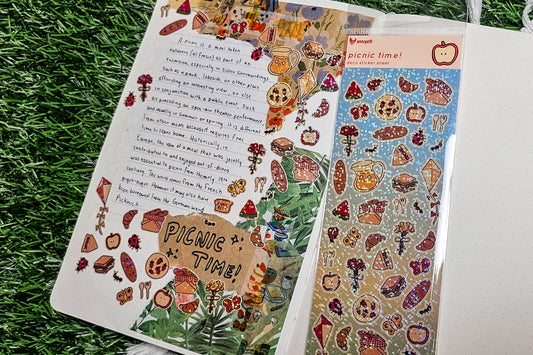 A picnic is a meal taken
outdoors (al fresco) as part of an
excursion, especially in scenic surroundings
such as a park, lakeside, or other place
affording an interesting view, or else
in conjunction with a public event such
as preceding an open-air theater performance
and usually in summer or spring. It is different
from other meals because it requires free
time to leave home. Historically, in
Europe, the idea of a meal that was jointly
contributed to and enjoyed out-of-doors
was essential to picnic from the early 19th
century. The word comes from the French
pique-nique. However it may also have
been borrowed from the German word
Picknick.
PICNIC
TIME!
picnic time!
deco sticker sheet